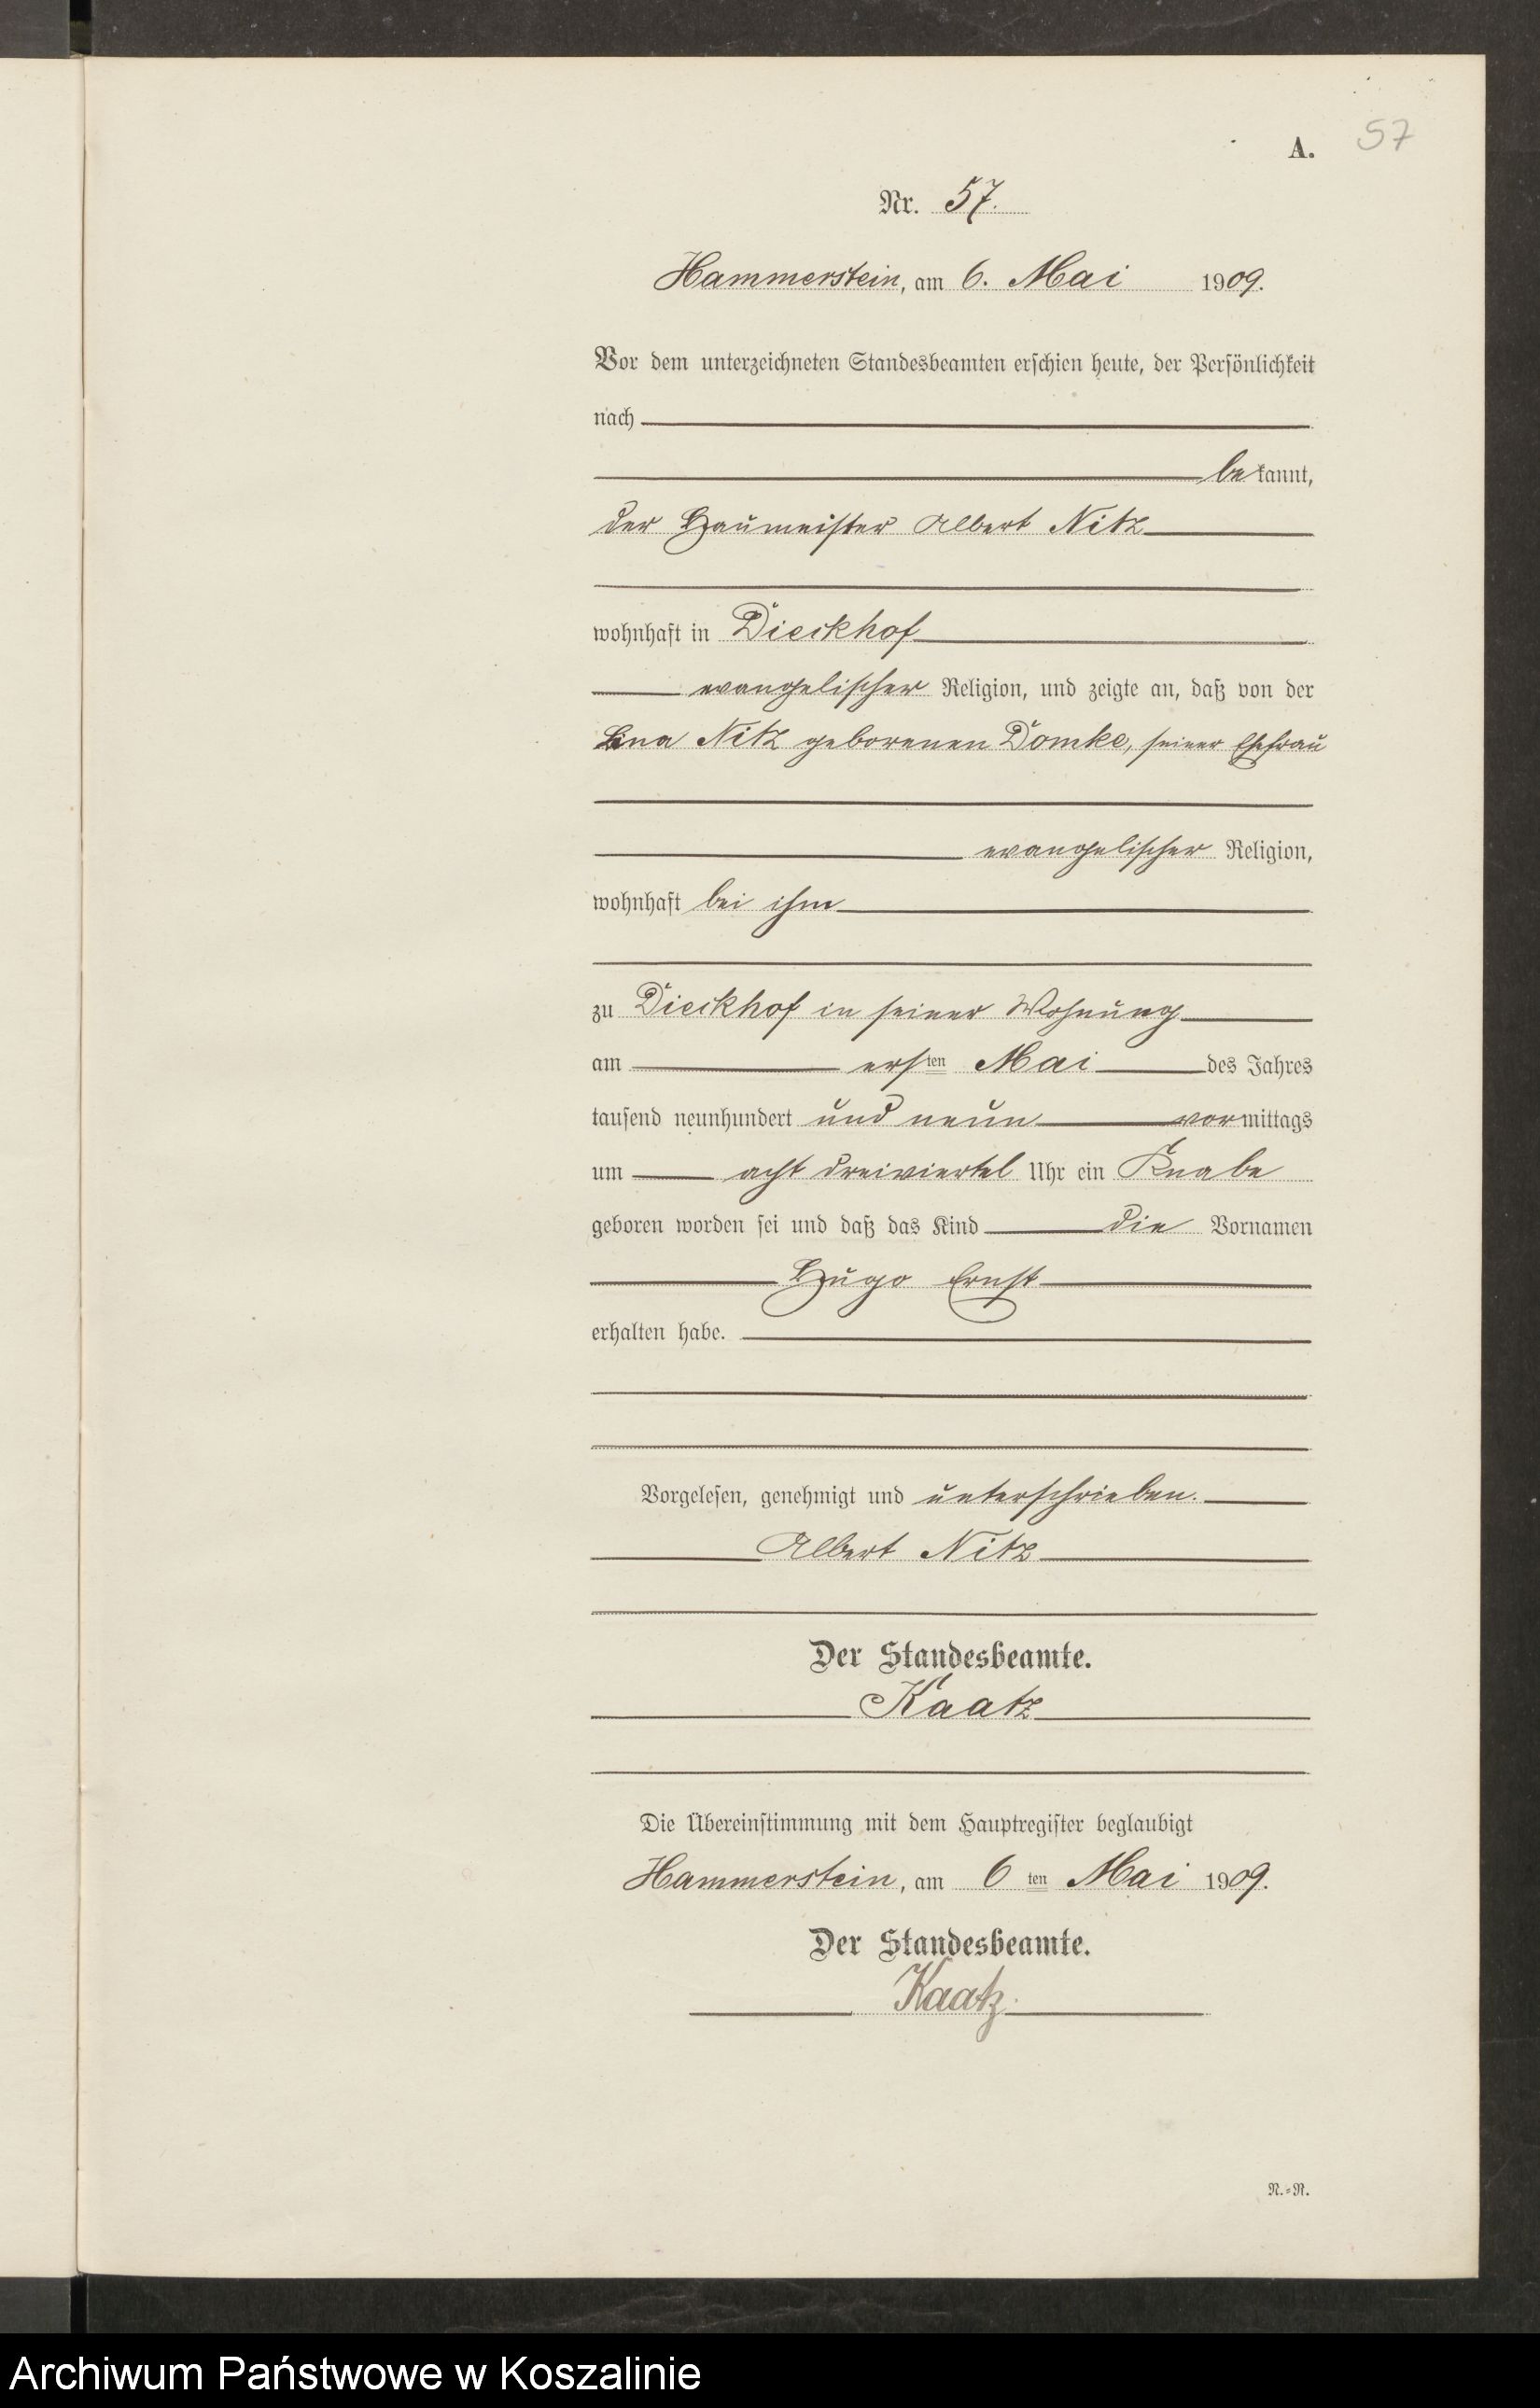 57
A.
Nr. 57.
Hammerstein, am 6. Mai 1909.
Vor dem unterzeichneten Standesbeamten erschien heute, der Persönlichkeit
nach
bekannt,
der Haumeister Albert Nitz
wohnhaft in Dieckhof
evangelischer Religion, und zeigte an, daß von der
Lina Nitz geborenen Domke, seiner Ehefrau
evangelischer Religion,
wohnhaft bei ihm
zu Dieckhof in seiner Wohnung
am ersten Mai des Jahres
tausend neunhundert und neun vormittags
um acht dreiviertel Uhr ein Knabe
geboren worden sei und daß das Kind die Vornamen
Hugo Ernst
erhalten habe.
Vorgelesen, genehmigt und unterschrieben.
Albert Nitz
Der Standesbeamte.
Kaatz
Die Übereinstimmung mit dem Hauptregister beglaubigt
Hammerstein, am 6ten Mai 1909.
Der Standesbeamte.
Kaatz.
N.=R.
Archiwum Państwowe w Koszalinie